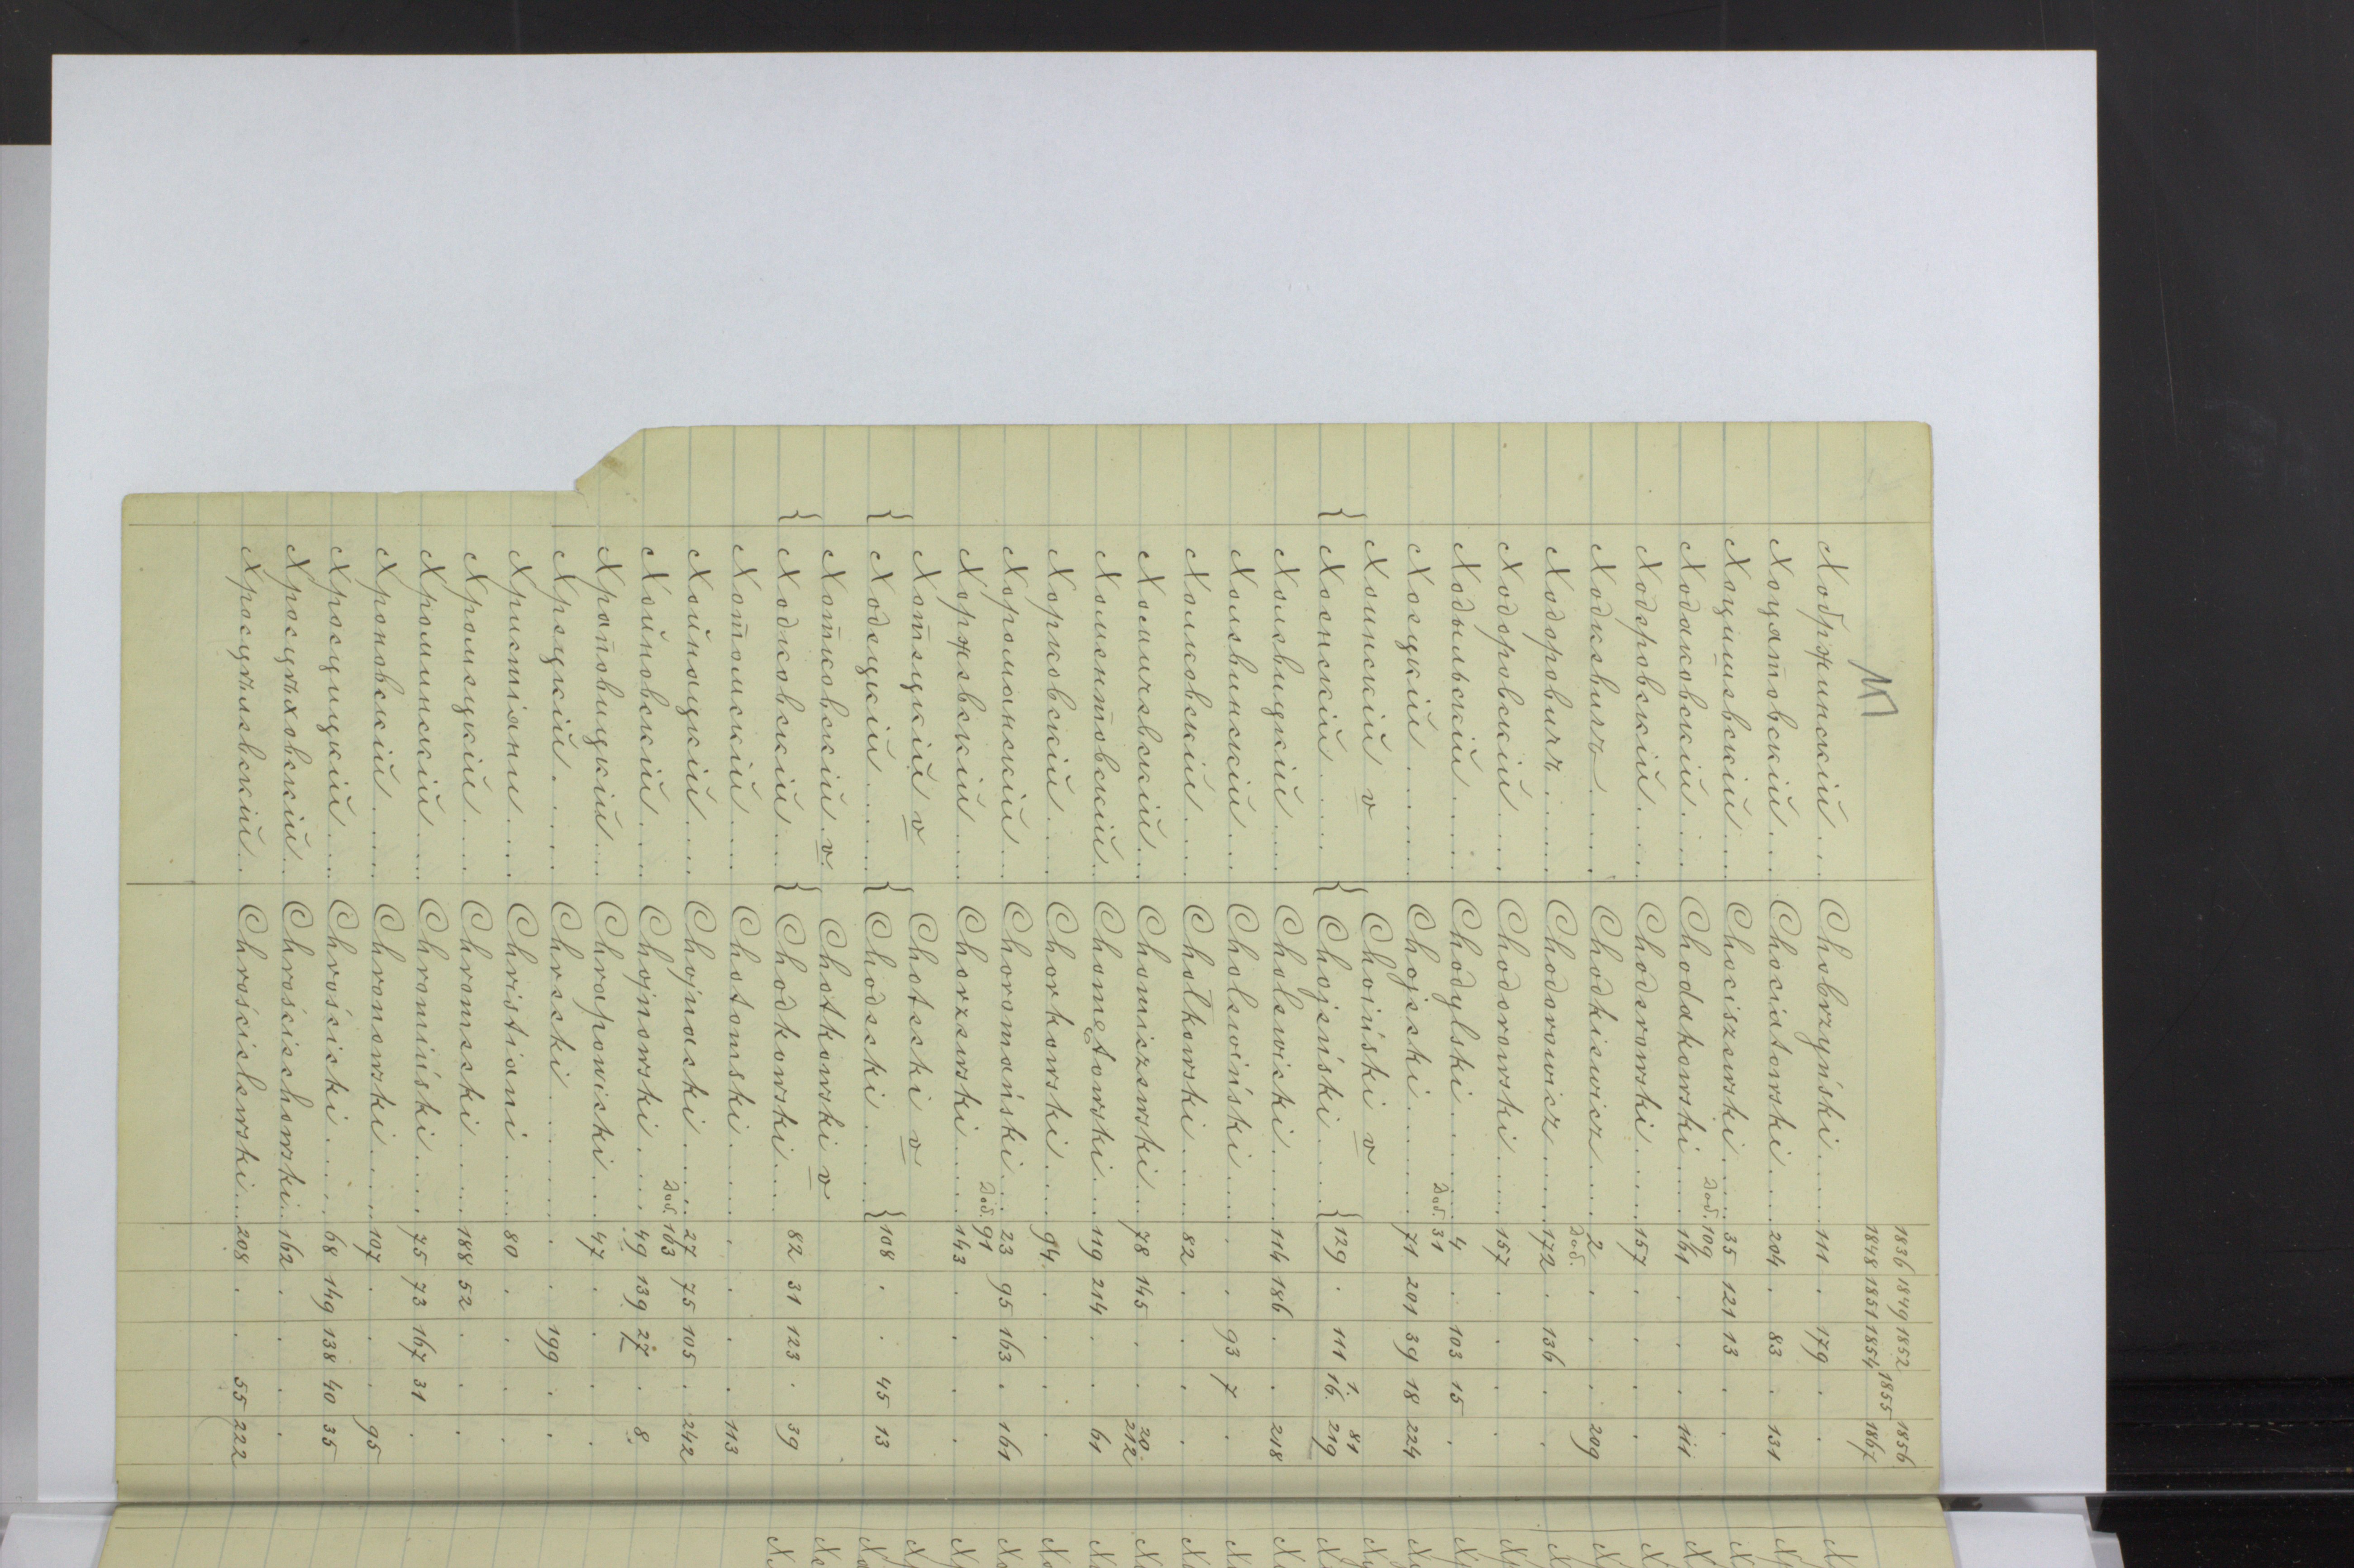 1836 1849 1852 1855 1856
1848 1851 1854 1867
Хобржинский... Chobrzyński.... 111 . 179 . .
Хоцятовскій... Chociatowski.... 204 . 83 . 131
Хоцишевскій... Chociszewski.... 35 121 13 .
Дод. 109
Ходаковскій.... Chodakowski.... 161 . . . 111
Ходеровскій.... Choderowski.... 157 . . .
Ходкевичъ.... Chodkiewicz.... 2 . . . 209
Дод.
Ходоровичъ.... Chodorowicz.... 172 . 136 . .
Ходоровскій.... Chodorowski.... 157 . . . .
Ходыльскій.... Chodylski.... 4 . 103 15 .
Дод. 31
Хоецкій.... Chojecki.... 71 201 39 18 224
Хоинскій v Choiński v
Хоенскій.... Chojeński.... 129 . 111 1. 16. 81 219
Холевицкій.... Cholewicki.... 114 186 . . 218
Холевинскій... Cholewiński.... . . 93 7 .
Холковскій.... Chołkowski.... 82 . . . .
Хомичевскій... Chomiczewski... 78 145 . . 20 212
Хоментовскій Chomętowski... 119 214 . . 61
Хорковскій... Chorkowski.... 94 . . . .
Хороманскій... Choromański... 23 95 163 . 161
Дод. 91
Хоржевскій... Chorzewski.... 143 . . . .
Хотецкій v Chotecki v
Ходецкій.... Chodecki.... 108 . . 45 13
Хотковскій v Chotkowski v
Ходковскій.... Chodkowski... 82 31 123 . 39
Хотомскій.... Chotomski.... . . . . 113
Хойнацкій.... Chojnacki.... 27 75 105 . 242
Дод. 163
Хойновскій.... Chojnowski.... 49 139 27 . 8.
Храповицкій... Chrapowicki... 47 . . . .
Хрецкій.... Chrecki.... . . 199 . .
Христіани.... Christiani.... 80 . . . .
Хромецкій.... Chromecki.... 188 52 . . .
Хроминскій... Chromiński.... 75 73 167 31 .
Хроновскій.... Chronowski.... 107 . . . 95
Хросцицкій... Chrościcki.... 68 149 138 40 35
Хросцѣховскій.. Chrościechowski.. 162 . . . .
Хросцѣлевскій.. Chrościelewski... 208 . . 55 222